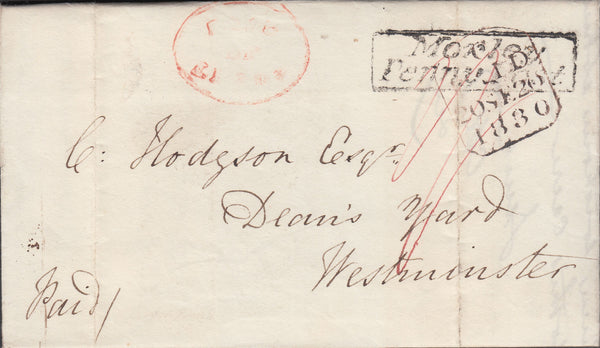 Penny Post
1830
C: Hodgson Esqr.
Dean's Yard
Westminster
Paid/